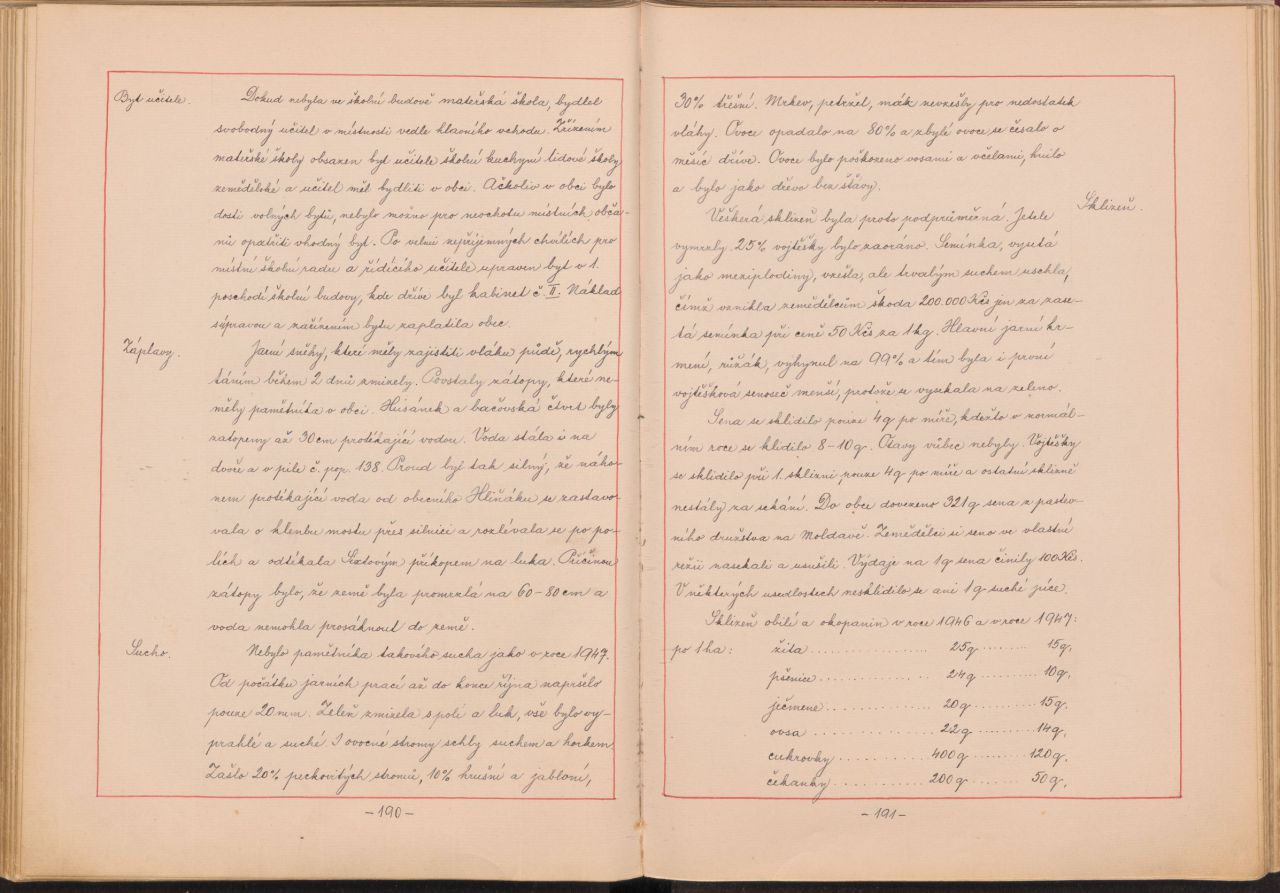 Byt učitele.
Dokud nebyla ve školní budově mateřská škola, bydlel
svobodný učitel v místnosti vedle hlavního vchodu. Zřízením
mateřské školy obsazen byt učitele školní kuchyní lidové školy
zemědělské a učitel měl bydliti v obci. Ačkoliv v obci bylo
dosti volných bytů, nebylo možno pro neochotu místních obča-
nů opatřiti vhodný byt. Po velmi nepříjemných chvílích pro
místní školní radu a řídícího učitele upraven byt v 1.
poschodí školní budovy, kde dříve byl kabinet č. II. Náklad
s úpravou a zařízením bytu zaplatila obec.
Záplavy.
Jarní sněhy, které měly zajistiti vláhu půdě, rychlým
táním během 2 dnů zmizely. Povstaly zátopy, které ne-
měly pamětníka v obci. Husánek a bačovská čtvrt byly
zatopeny až 30 cm protékající vodou. Voda stála i na
dvoře a v pile č. pop. 138. Proud byl tak silný, že náho-
nem protékající voda od obecního Hliňáku se zastavo-
vala o klenbu mostu přes silnici a rozlévala se po po-
lích a odtékala Sixtovým příkopem na luka. Příčinou
zátopy bylo, že země byla promrzlá na 60-80 cm a
voda nemohla prosáknout do země.
Sucho.
Nebylo pamětníka takového sucha jako v roce 1947.
Od počátku jarních prací až do konce října napršelo
pouze 20 mm. Zeleň zmizela s polí a luk, vše bylo vy-
prahlé a suché. I ovocné stromy schly suchem a horkem.
Zašlo 20% peckovitých stromů, 10% hrušní a jabloní,
-190-
30% třešní. Mrkev, petržel, mák nevzešly pro nedostatek
vláhy. Ovoce opadalo na 80% a zbylé ovoce se česalo o
měsíc dříve. Ovoce bylo poškozeno vosami a včelami, hnilo
a bylo jako dřevo bez šťávy.
Sklizeň.
Veškerá sklizeň byla proto podprůměrná. Jetele
vymrzly. 25% vojtěšky bylo zaoráno. Semínka, vysetá
jako meziplodiny, vzešla, ale trvalým suchem uschla,
čímž vznikla zemědělcům škoda 200.000 Kčs jen za zase-
tá semínka při ceně 50 Kčs za 1 kg. Hlavní jarní kr-
mení, růžák, vyhynul na 99% a tím byla i první
vojtěšková senoseč menší, protože se vysekala na zeleno.
Sena se sklidilo pouze 4q po míře, kdežto v normál-
ním roce se klidilo 8-10q. Otavy vůbec nebyly. Vojtěšky
se sklidilo při 1. sklizni pouze 4q po míře a ostatní sklizně
nestály za sekání. Do obce dovezeno 321q sena z pastev-
ního družstva na Moldavě. Zemědělci si seno ve vlastní
režii nasekali a usušili. Výdaje na 1q sena činily 100 Kčs.
V některých usedlostech nesklidilo se ani 1q suché píce.
Sklizeň obilí a okopanin v roce 1946 a v roce 1947:
po 1 ha: žita .................. 25q ......... 15q.
pšenice .................. 24q ......... 10q.
ječmene .................. 20q ......... 15q.
ovsa .................. 22q ......... 14q.
cukrovky .............. 400q ......... 120q.
čekanky .............. 200q ......... 50q.
-191-